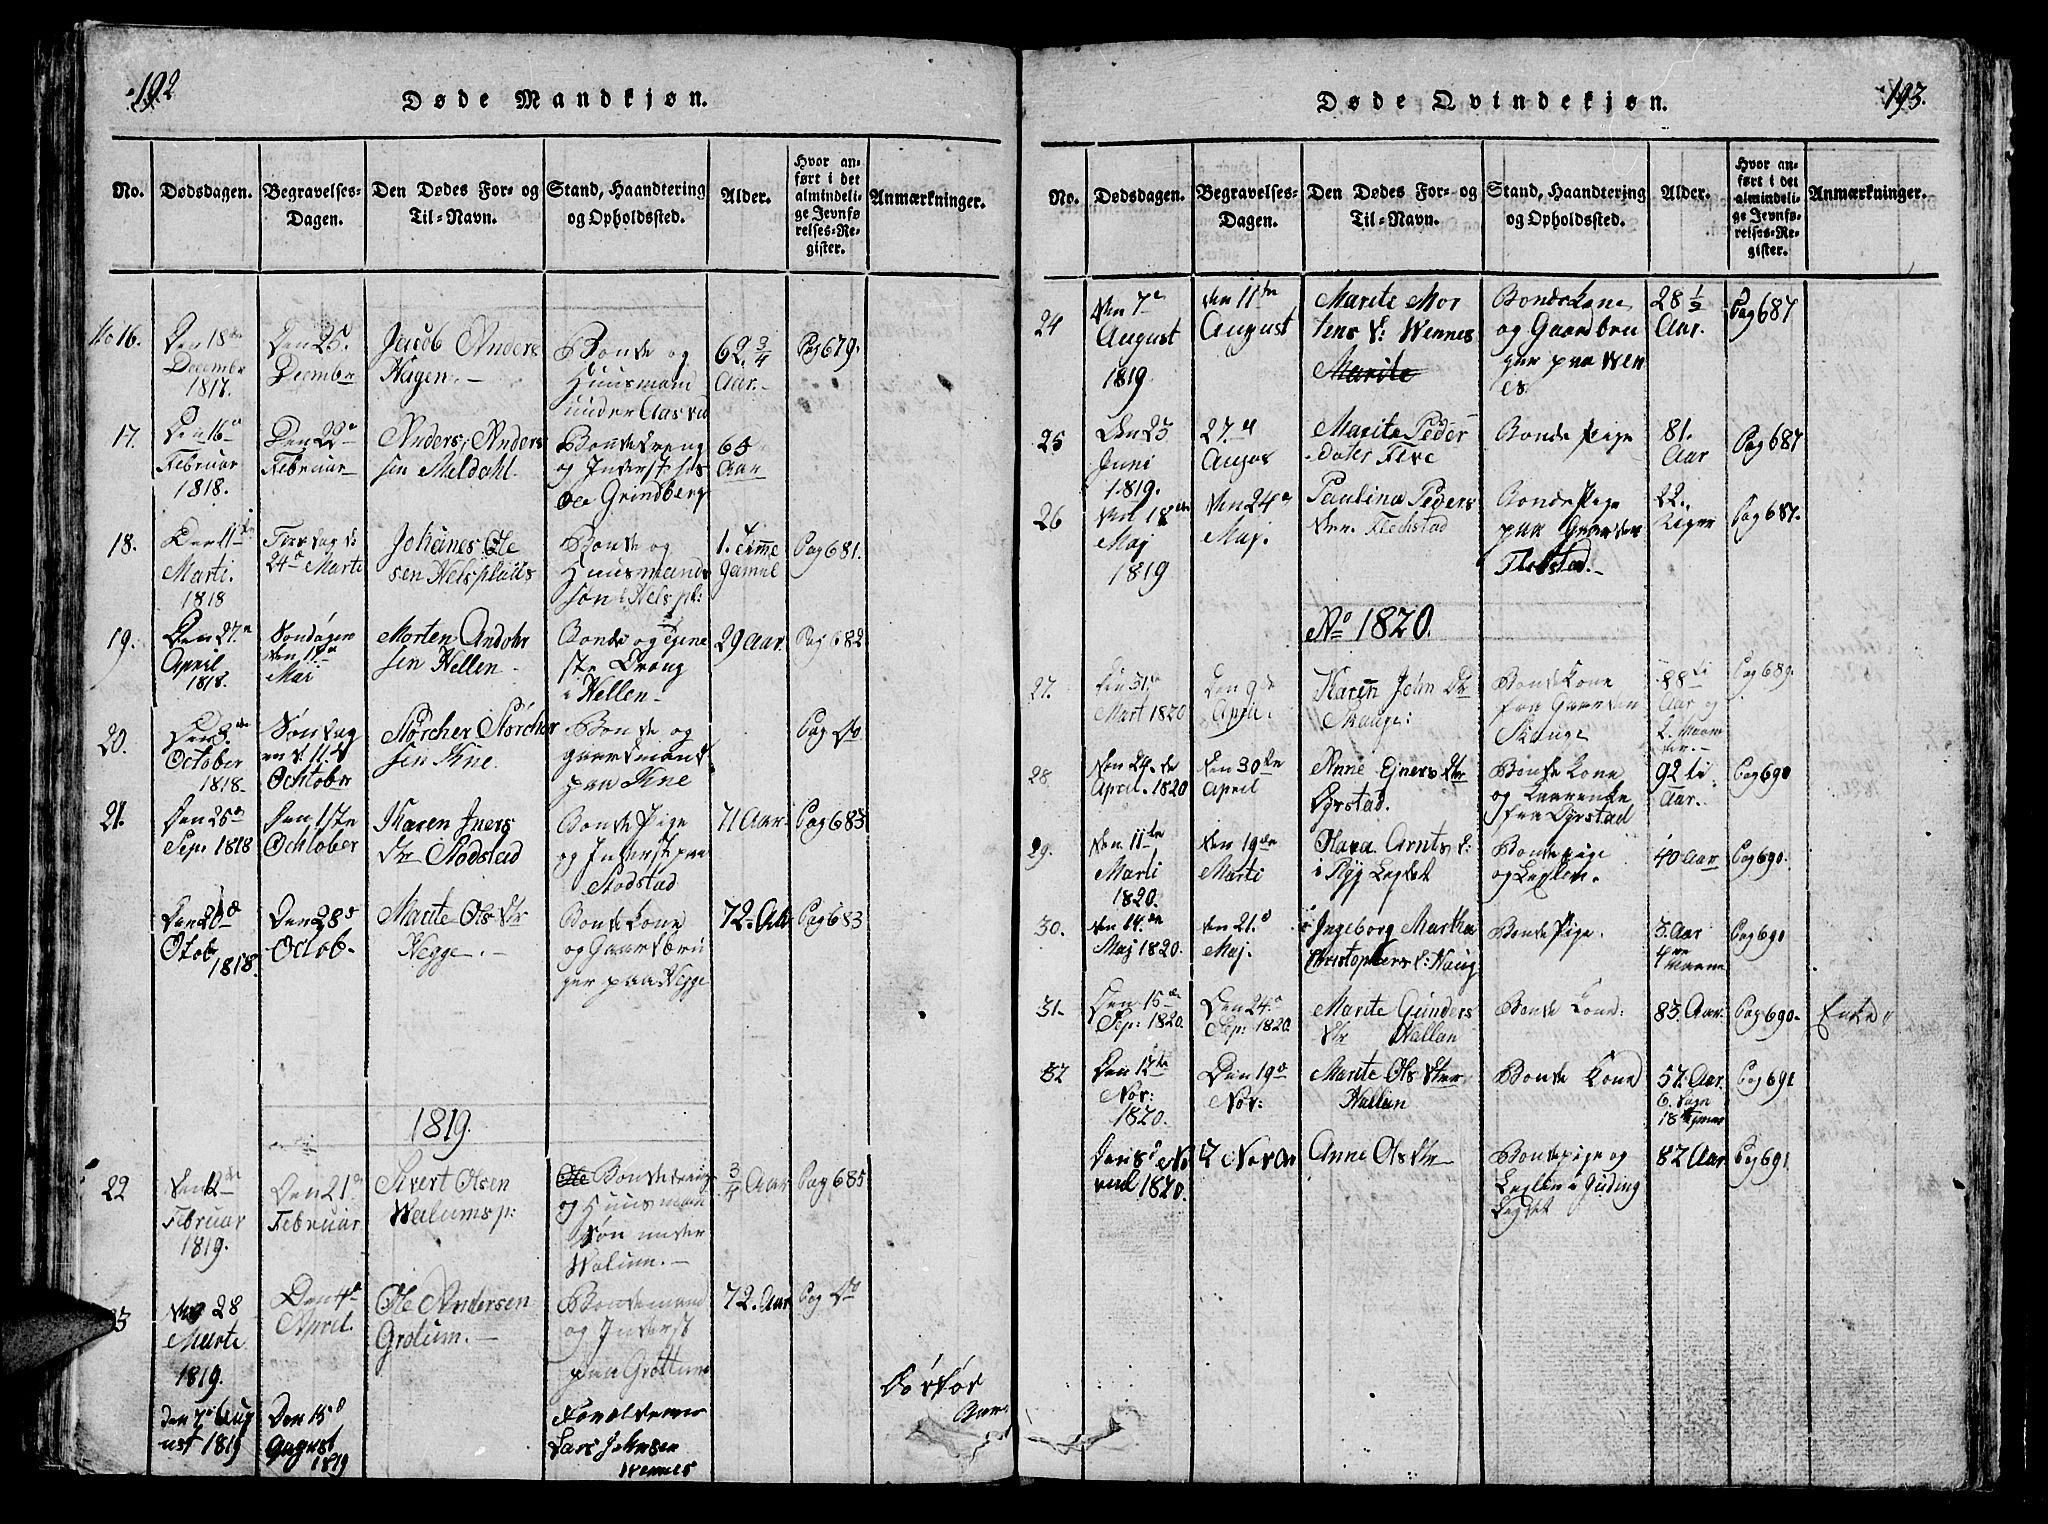 192
Døde Mandkjøn.
No.
Dødsdagen.
Begravelses-
Dagen.
Den Dødes For- og
Til-Navn.
Stand, Haandtering
og Opholdssted.
Alder.
Hvor an-
ført i det
almindeli-
ge Jevnfø
relses-Re-
gister.
Anmærkninger.
No 16.
Den 18de
December
1817.
Den 25d
December
Jacob Anders
Hagen.-
Bonde og
Huusmand
under Aasva
62 3/4
Aar.-
Pag 679.
17.
Den 16d
Februar
1818.
Den 22d
Februar
Anders Anders
sen Meldahl.
Bondedreng
og Inderst hos
Ole Grindberg
65
Aar
18.
Den 11te
Marti.
1818
24d Marti
Johanes Ole
sen Helsplads
Bonde og
Huusmands
søn i Helspl:
1. Time
Gamel
Pag 681.
19.
Den 27de
April
1818.
Søndagen
den
Mai
Morten
sen Hellen.
Bonde og tjene
ste Dreng
i Hellen-
29 Aar.
Pag 682
20.
Den 3de
October
1818.
Søndag
en d. 11d
Ochtober
Störcher Störcher
sen Kne.
Bonde og
gaardmand
paa Kne
Pag Do
21.
Den 25d
Sep: 1818
Den 1ste
Ochtober
Karen Iners
Dtr Stodstad
Bonde Pige
og Inderst paa
Stodstad
71 Aar.
Pag 683
Den 20d
Otob
1818.
Den 28d
Octob-
Marite Ols dtr
Hegge.-
Bonde Kone
og Gaardbru
ger paa Hegge
72. Aar
Pag 683
1819.
22
Den 2de
Februar
1819.
Den 21d
Februar
Sivert Olsen
Walumsp:
Bondedreng
og Huusmand
Søn under
Walum.-
3/4 Aar
Pag 685
Den 28
Marti
1819.
Den 4d
April.
Ole Andersen
Grolum.-
Bondemand
og Inderst
paa Grottum
72. Aar
Pag Do
den 7d Aug
ust 1819
Den 15d
August
1819
Foreldrenes
Lars Johnsen
Wennes
Dødfød
Barn
193.
Døde Qvindekjøn.
No.
Dødsdagen.
Begravelses-
Dagen.
Den Dødes For- og
Til-Navn.
Stand, Haandtering
og Opholdssted.
Alder.
Hvor an-
ført i det
almindeli-
ge Jevnfø-
relses-Re-
gister.
Anmærkninger.
24
den 7de
August
1819
den 11te
August
Marite Mor
tens d: Wennes
Marite
Bondekone
og Gaardbru
ger paa Wen
es.
28 1/2
Aar.
Pag 687
25
Den 23
Juni
1819.
27.d
Augus
Marite Peder
dater Five
Bonde Pige
81.
Aar
Pag 687
26
den 18de
Maj
1819
den 24d
Maj.
Paulina Peders
Flechstad
Bonde Pige
paa Gaarden
Flekstad.-
22.
Pag 687.
No 1820.
27.
Den 31te
Mart 1820
Den 9de
April.
Karen John Dtr
Skauge:
Bonde Kone
fra Gaarden
Skauge
88
Aar og
2. Maane
der.-
Pag 689.
28.
den 24de
April. 1820
den 30te
April
Anne Ejners Dtr
Ørstad.
Bonde Kone
og
fra Ørstad
92ti
Aar.
Pag 690
29.
den 11te
Marti
1820.
den 19de
Marti
Olava Arnts d:
i Ryg Legdet
Bondepige
og Leglem.
40 Aar
Pag 690.
30.
den 14de
Maj 1820.
den 21d
Maj.
Ingeborg Martha
Christophers d: Haug
Bonde Pige.
3. Aar
4re
Maane
Pag 690
31.
Den 15de
Sep: 1820.
Den 24d
Sep: 1820.
Marite Gunders
dtr Hallan
Bonde Kone:
83. Aar.
Pag 690.
Enke
32
Den 12te
Nov:
1820.
Den 19d
Nov:
Marite Ols dtr
Hallan
Bonde Kone
57. Aar.
6. dage
18 timer
Pag 691
Den 8d No
vem 1820.
Anne Ols dtr
Bondepige og
Leglem i Guding
Legdet
82 Aar
Pag 691.